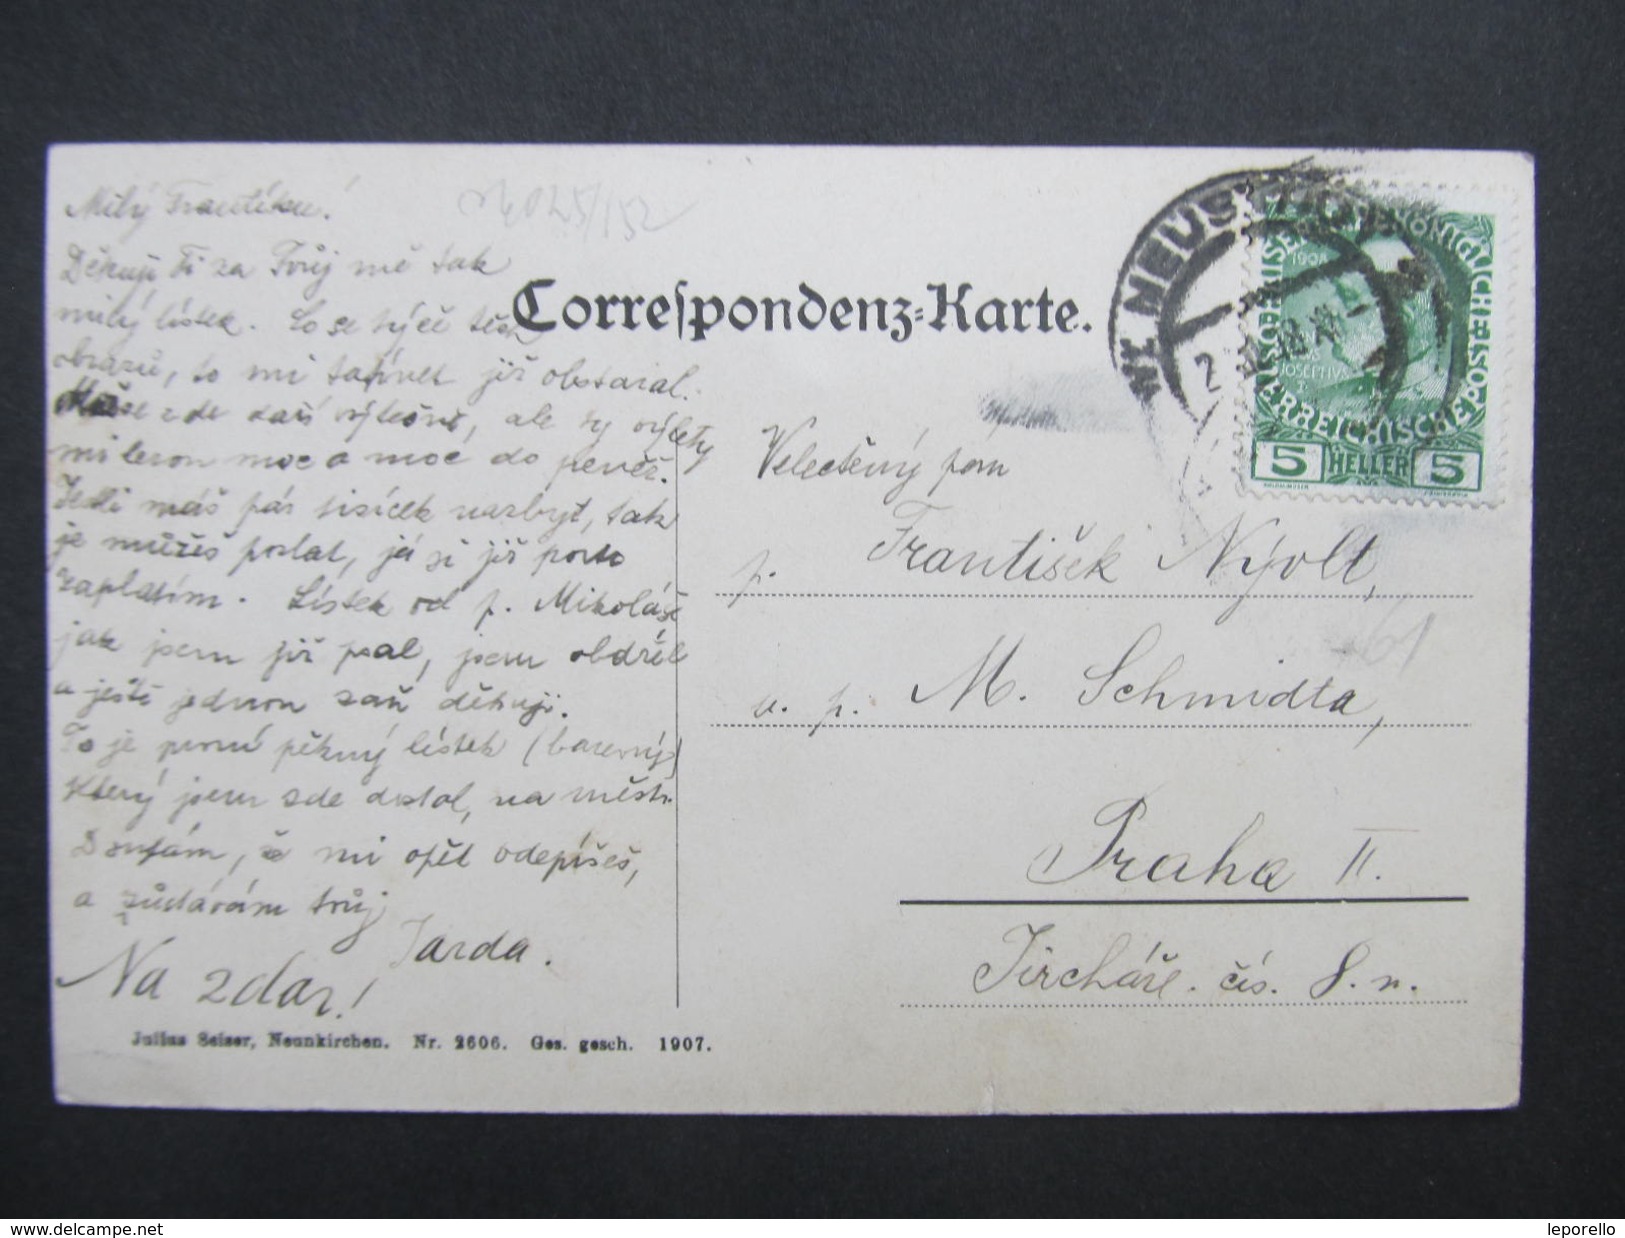 Milý Frantíku!
Děkuji Ti za Tvůj mě tak
milý lístek. Co se týče těch
obrazů, to mi tatínek již obstaral.
zde daří výtečně, ale ty výlety
mi lezou moc a moc do peněz.
Jestli máš pár tisícek nazbyt, tak
je můžeš poslat, já si již porto
zaplatím. Lístek od p. Mikoláše
jak jsem již psal, jsem obdržel
a ještě jednou zaň děkuji.
To je první pěkný lístek (barevný)
který jsem zde dostal, na
Doufám, že mi opět odepíšeš,
a zůstávám tvůj
Jarda.
Na zdar!
Julius Seiser, Neunkirchen. Nr. 2606. Ges. gesch. 1907.
Correspondenz-Karte.
Velectěný pan
p. František Nývlt,
u. p. M. Schmidta,
Praha II.
Jircháře. čís. 8. n.
1908
5 HELLER 5
www.delcampe.net
leporello